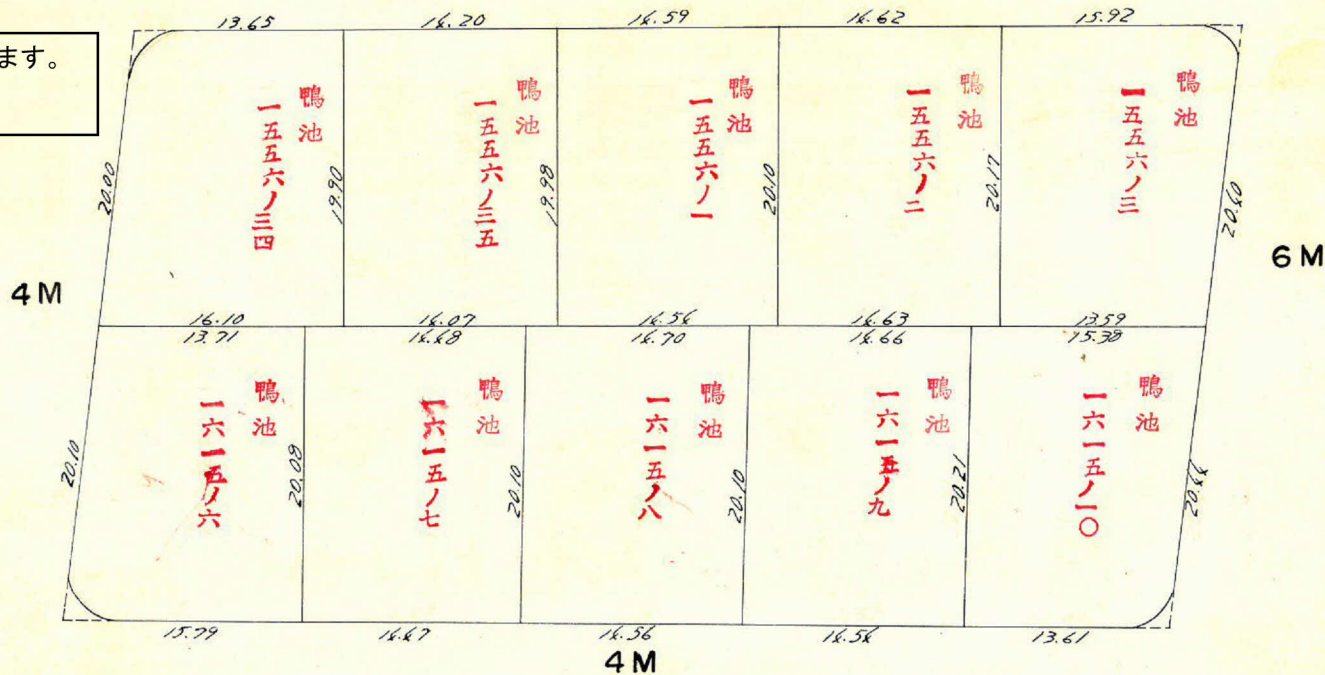 ます。
13.65
14.20
14.59
14.62
15.92
鴨池
一五五六ノ三四
鴨池
一五五六ノ三五
鴨池
一五五六ノ一
鴨池
一五五六ノ二
鴨池
一五五六ノ三
20.00
19.90
19.98
20.10
20.17
20.40
4M
6M
16.10
14.07
14.54
14.63
13.59
13.71
14.48
14.70
14.66
15.38
鴨池
一六一五ノ六
鴨池
一六一五ノ七
鴨池
一六一五ノ八
鴨池
一六一五ノ九
鴨池
一六一五ノ一〇
20.10
20.08
20.10
20.10
20.21
20.44
15.79
14.47
14.56
14.54
13.61
4M